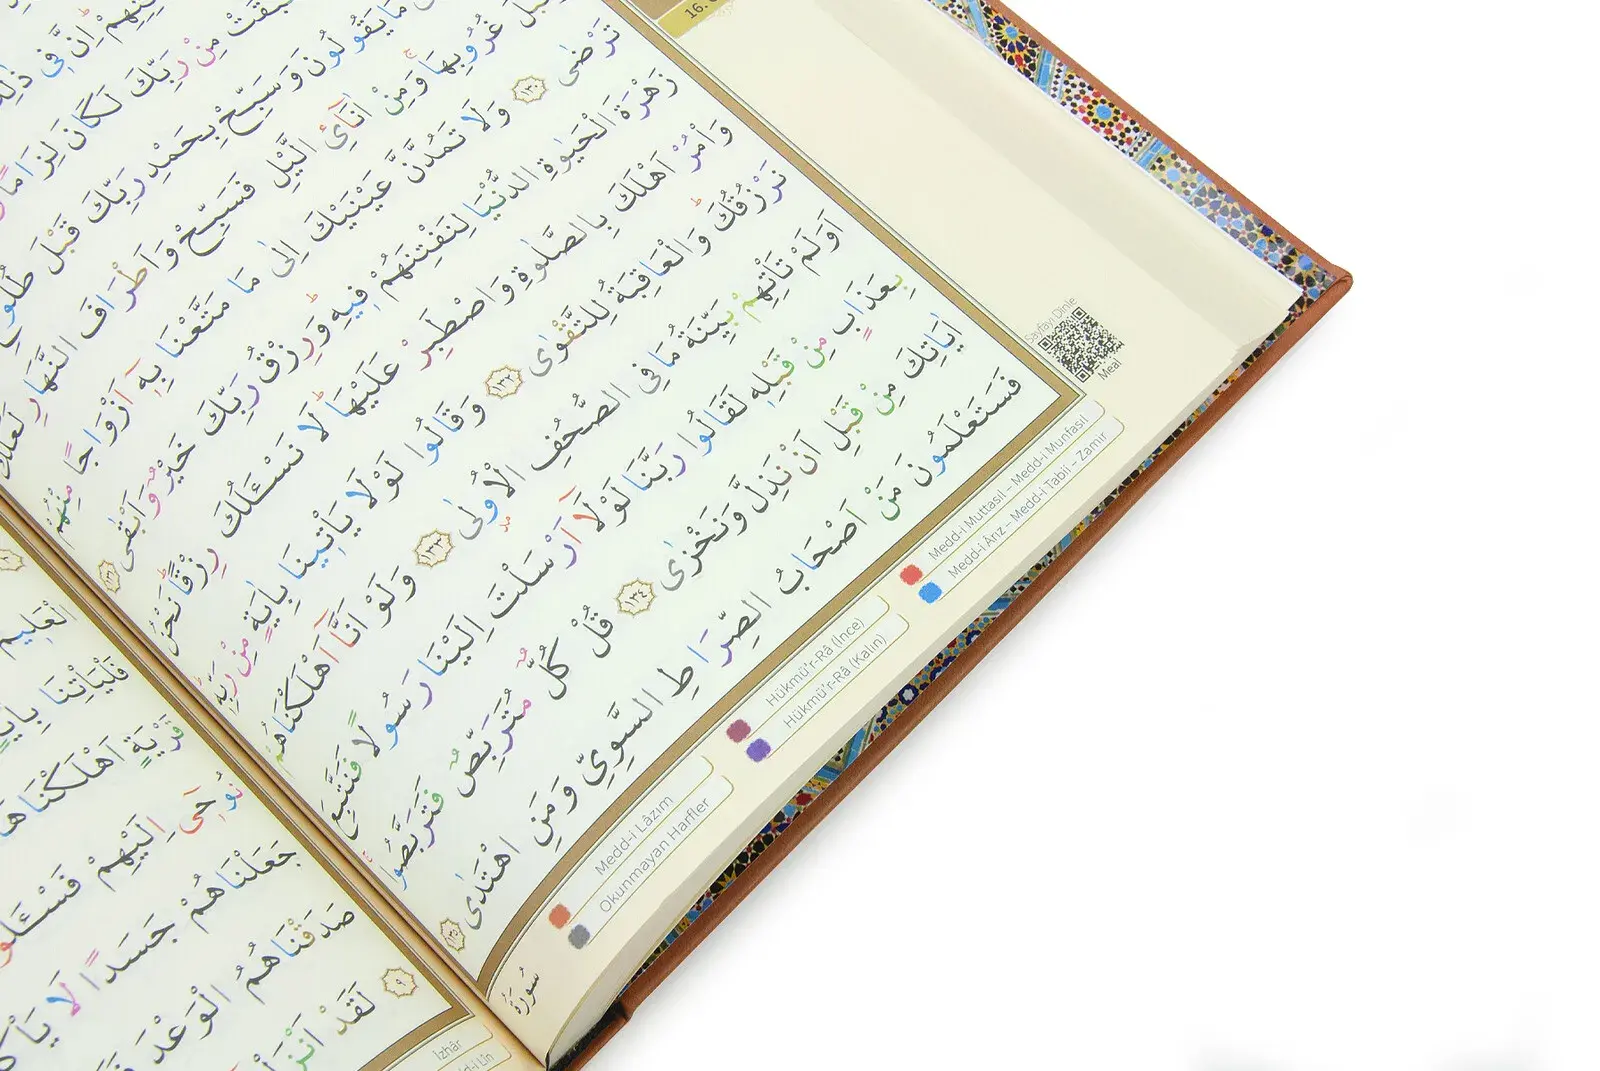 اِنَّ فٖى ذٰلِكَ
سَبَقَتْ مِنْ رَبِّكَ لَكَانَ لِزَامًا
مَا يَقُولُونَ وَسَبِّحْ بِحَمْدِ رَبِّكَ قَبْلَ طُلُوعِ
غُرُوبِهَا وَمِنْ اٰنَٓائِ الَّيْلِ فَسَبِّحْ وَاَطْرَافَ النَّهَارِ لَعَلَّكَ
تَرْضٰى ١٣٠ وَلَا تَمُدَّنَّ عَيْنَيْكَ اِلٰى مَا مَتَّعْنَا بِهٖٓ اَزْوَاجًا مِنْهُمْ
زَهْرَةَ الْحَيٰوةِ الدُّنْيَا لِنَفْتِنَهُمْ فٖيهِ وَرِزْقُ رَبِّكَ خَيْرٌ وَاَبْقٰى ١٣١
وَأْمُرْ اَهْلَكَ بِالصَّلٰوةِ وَاصْطَبِرْ عَلَيْهَا لَا نَسْـَٔلُكَ رِزْقًا نَحْنُ
نَرْزُقُكَ وَالْعَاقِبَةُ لِلتَّقْوٰى ١٣٢ وَقَالُوا لَوْلَا يَأْتٖينَا بِاٰيَةٍ مِنْ رَبِّهٖ
اَوَلَمْ تَأْتِهِمْ بَيِّنَةُ مَا فِى الصُّحُفِ الْاُولٰى ١٣٣ وَلَوْ اَنَّٓا اَهْلَكْنَاهُمْ
بِعَذَابٍ مِنْ قَبْلِهٖ لَقَالُوا رَبَّنَا لَوْلَٓا اَرْسَلْتَ اِلَيْنَا رَسُولًا فَنَتَّبِعَ
اٰيَاتِكَ مِنْ قَبْلِ اَنْ نَذِلَّ وَنَخْزٰى ١٣٤ قُلْ كُلٌّ مُتَرَبِّصٌ فَتَرَبَّصُوا
فَسَتَعْلَمُونَ مَنْ اَصْحَابُ الصِّرَاطِ السَّوِيِّ وَمَنِ اهْتَدٰى ١٣٥
Sayfayı Dinle
Meal
Medd-i Muttasıl – Medd-i Munfasıl
Medd-i Ârız – Medd-i Tabiî – Zamir
Hükmü'r-Râ (İnce)
Hükmü'r-Râ (Kalın)
Medd-i Lâzım
Okunmayan Harfler
سُورَةُ
الْعَلٖيمُ
فَلْيَأْتِنَا بِاٰيَةٍ
قَرْيَةٍ اَهْلَكْنَاهَا
نُوحٖٓى اِلَيْهِمْ فَسْـَٔلُٓوا
جَعَلْنَاهُمْ جَسَدًا لَا
صَدَقْنَاهُمُ الْوَعْدَ
٩ لَقَدْ
İzhâr